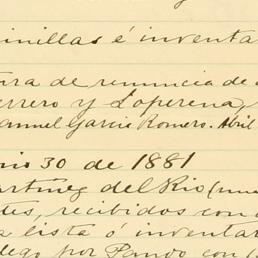 inillas é inventa
ura de renuncia de
errero y Loperena,
anuel Garcia Romero. Abril
nio 30 de 1881
artinez del Rio (una
tes, recibidos con
a lista ó inventar
lego por Pando con